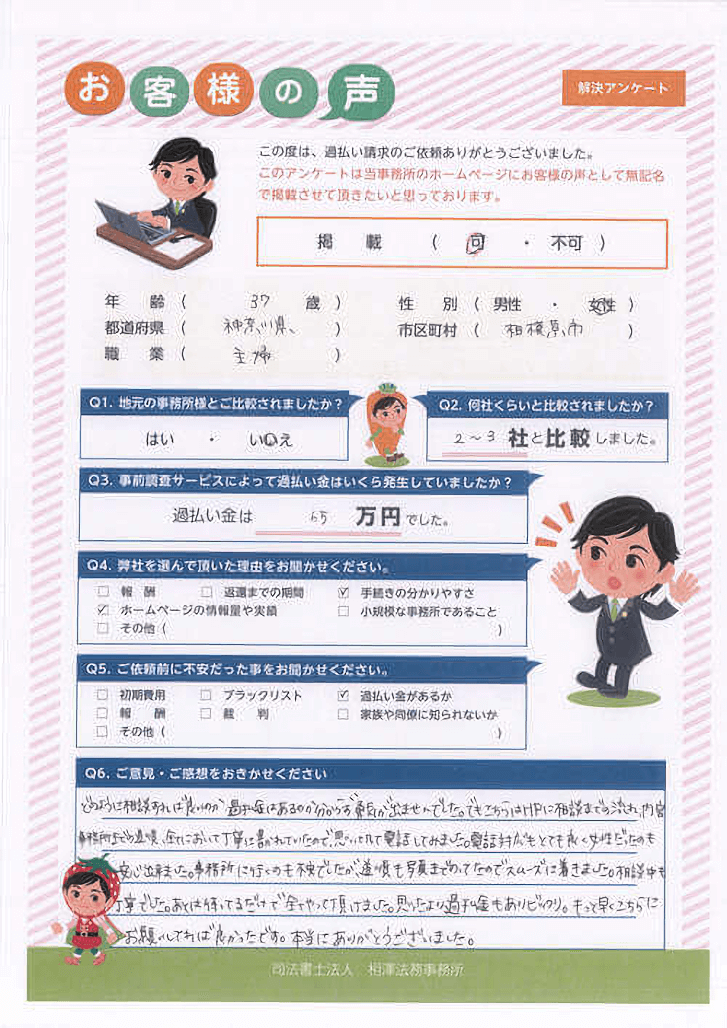 お客様の声
解決アンケート
この度は、過払い請求のご依頼ありがとうございました。
このアンケートは当事務所のホームページにお客様の声として無記名
で掲載させて頂きたいと思っております。
掲 載 ( 可 ・ 不可 )
年 齢 ( 37 歳 ) 性 別 ( 男性 ・ 女性 )
都道府県 ( 神奈川県 ) 市区町村 ( 相模原市 )
職 業 ( 主婦 )
Q1. 地元の事務所様とご比較されましたか? Q2. 何社くらいと比較されましたか?
はい ・ いいえ 2~3 社と比較しました。
Q3. 事前調査サービスによって過払い金はいくら発生していましたか?
過払い金は 65 万円でした。
Q4. 弊社を選んで頂いた理由をお聞かせください。
□ 報 酬 □ 返還までの期間 ☑ 手続きの分かりやすさ
☑ ホームページの情報量や実績 □ 小規模な事務所であること
□ その他 ( )
Q5. ご依頼前に不安だった事をお聞かせください。
□ 初期費用 □ ブラックリスト ☑ 過払い金があるか
□ 報 酬 □ 裁 判 □ 家族や同僚に知られないか
□ その他 ( )
Q6. ご意見・ご感想をおきかせください
どのように相談すれば良いのか過払金はあるのか分からず勇気が出ませんでした。でもこちらはHPに相談までの流れ、内容
事務所までの道順、全てにおいて丁寧に書かれていたので、思いきって電話してみました。電話対応もとても良く女性だったのも
安心出来ました。事務所に行くのも不安でしたが、道順も写真までのってたのでスムーズに着きました。相談中も
丁寧でした。あとは待ってるだけで全てやって頂けました。思ったより過払金もありビックリ。もっと早くこちらに
お願いしてれば良かったです。本当にありがとうございました。
司法書士法人 相澤法務事務所